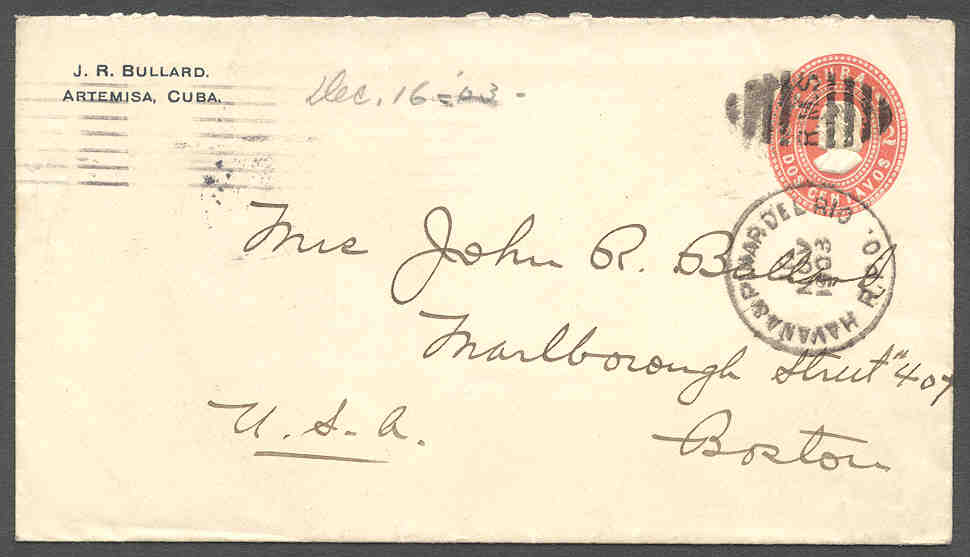 J. R. BULLARD.
ARTEMISA, CUBA.
Dec. 16-03-
R.M.S
DOS CENTAVOS 2
HAVANA & PINAR DEL RIO R.P.O.
NOV
1903
Mrs John R. Bullard
Marlborough Street #407
Boston
U.S.A.